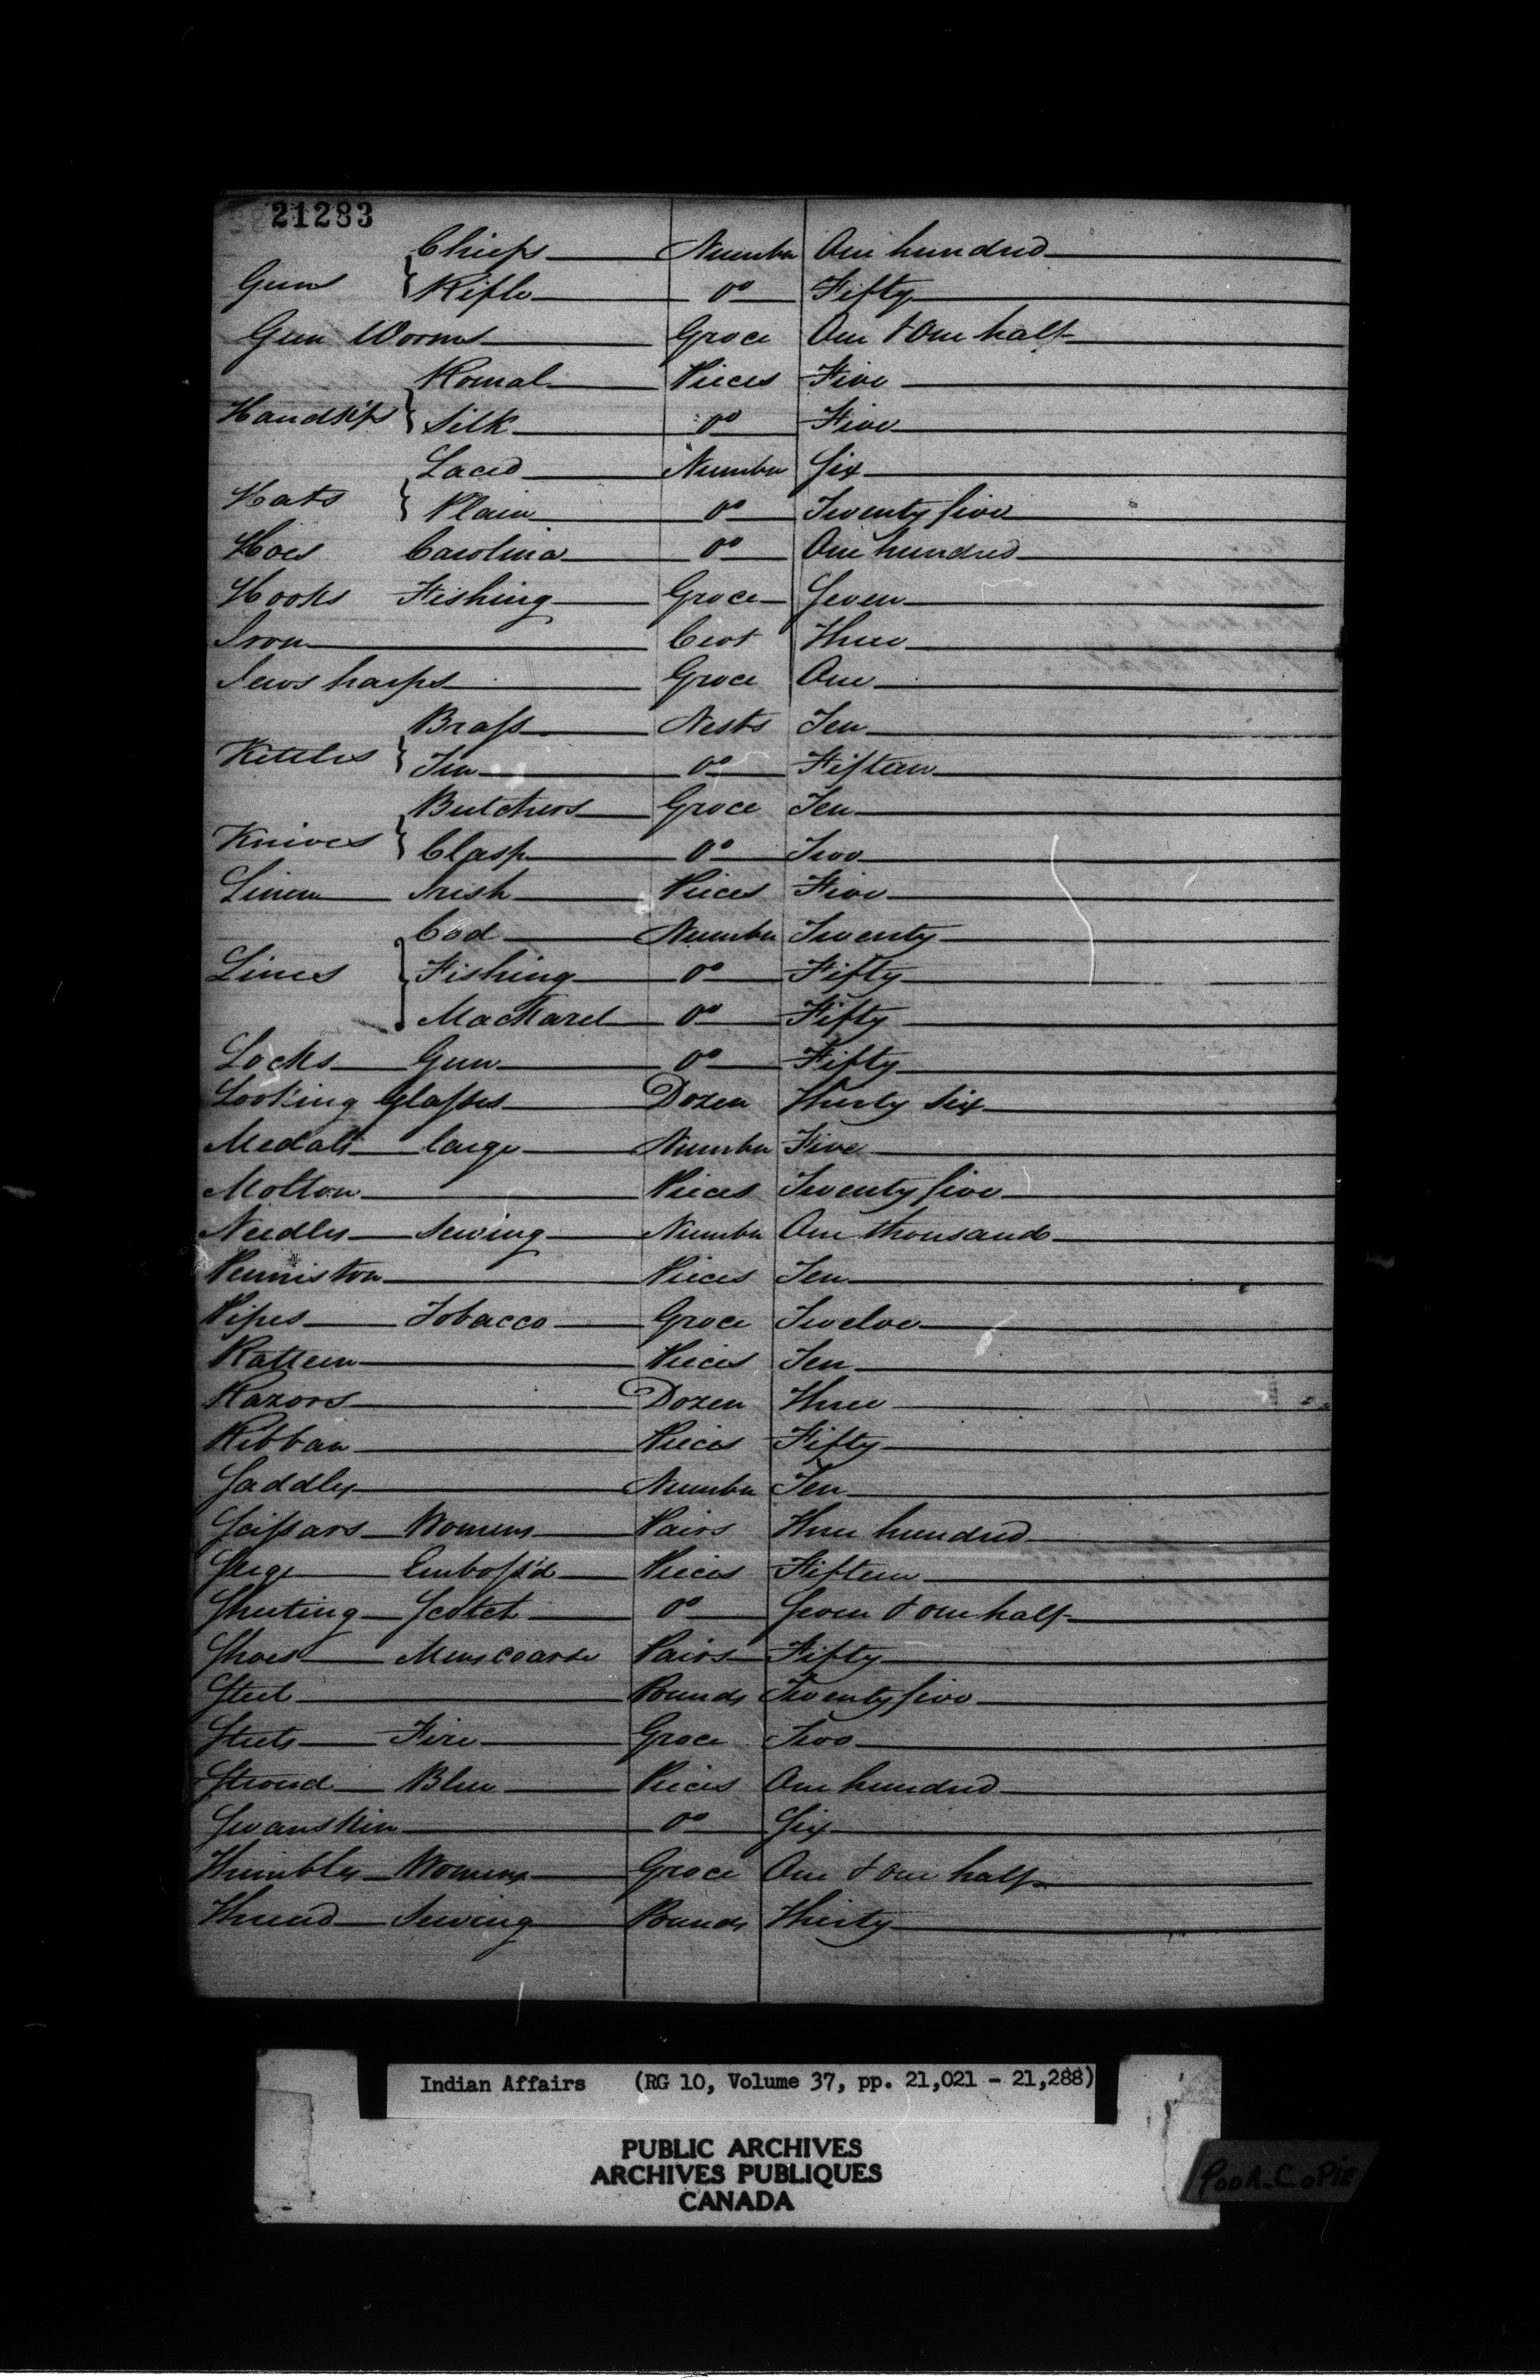 21283
Chiefs Number One hundred
Guns { Rifle Do Fifty
Gun Worms Groce One & One half
Romal Pieces Five
Handk'fs { Silk Do Five
Laced Number Six
Hats { Plain Do Twenty five
Hoes Carolina Do One hundred
Hooks Fishing Groce Seven
Iron Cwt Three
Jews harps Groce One
Brass Nests Ten
Kettles { Tin Do Fifteen
Butchers Groce Ten
Knives { Clasp Do Two
Linen Irish Pieces Five
Cod Number Twenty
Lines { Fishing Do Fifty
Mackarel Do Fifty
Locks Gun Do Fifty
Looking Glasses Dozen Thirty six
Medals large Number Five
Molton Pieces Twenty five
Needles Sewing Number One thousand
Penniston Pieces Ten
Pipes Tobacco Groce Twelve
Ratteen Pieces Ten
Razors Dozen Three
Ribban Pieces Fifty
Saddles Number Ten
Scissars Womens Pairs Three hundred
Serge Emboss'd Pieces Fifteen
Sheeting Scotch Do Seven & one half
Shoes Mens coarse Pairs Fifty
Steel Pounds Twenty five
Steels Fire Groce Two
Stroud Blue Pieces One hundred
Swanskin Do Six
Thimbles Womens Groce One & one half
Thread Sewing Pounds Thirty
Indian Affairs (RG 10, Volume 37, pp. 21,021 - 21,288)
PUBLIC ARCHIVES
ARCHIVES PUBLIQUES
CANADA
POOR COPIE